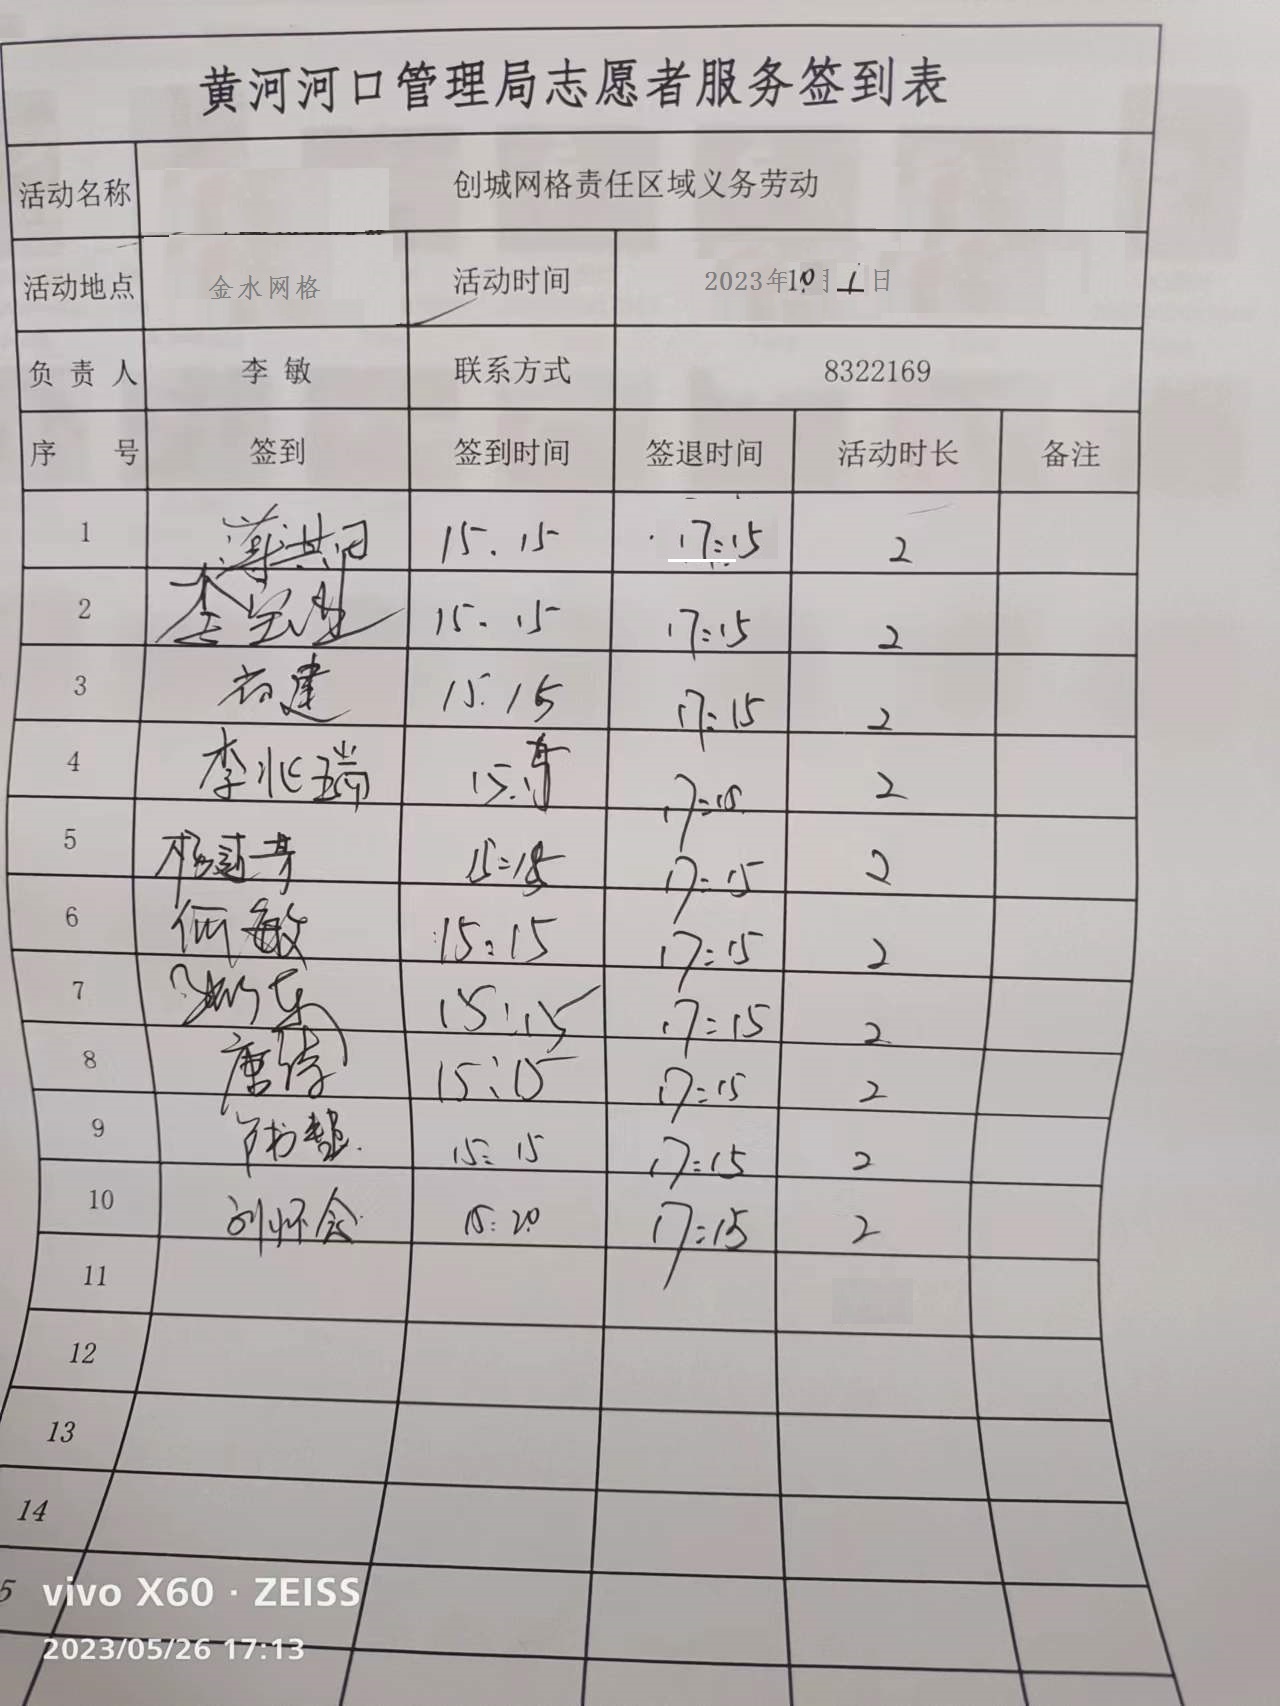 黄河河口管理局志愿者服务签到表
活动名称 创城网格责任区域义务劳动
活动地点 金水网格 活动时间 2023年10月1日
负责人 李敏 联系方式 8322169
序号 签到 签到时间 签退时间 活动时长 备注
1 15.15 17:15 2
2 15.15 17:15 2
3 15:15 17:15 2
4 李兆瑞 17:15 2
5 15:15 17:15 2
6 何敏 15:15 17:15 2
7 15:15 17:15 2
8 唐 15:15 17:15 2
9 15:15 17:15 2
10 刘怀会 15:20 17:15 2
11
12
13
14
5
vivo X60 · ZEISS
2023/05/26 17:13